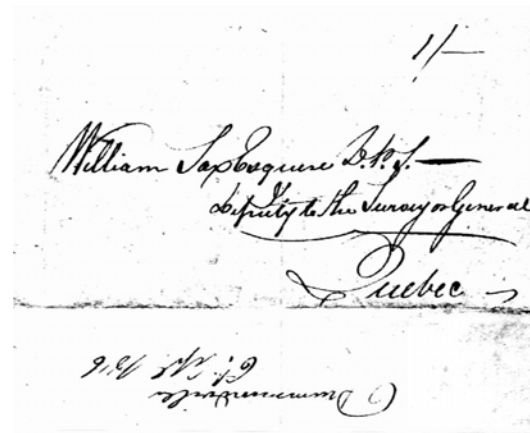 1/-
William Sax Esquire D.P.S. —
Deputy to the Surveyor General
Quebec
Drummondville
6th Sept. 1816